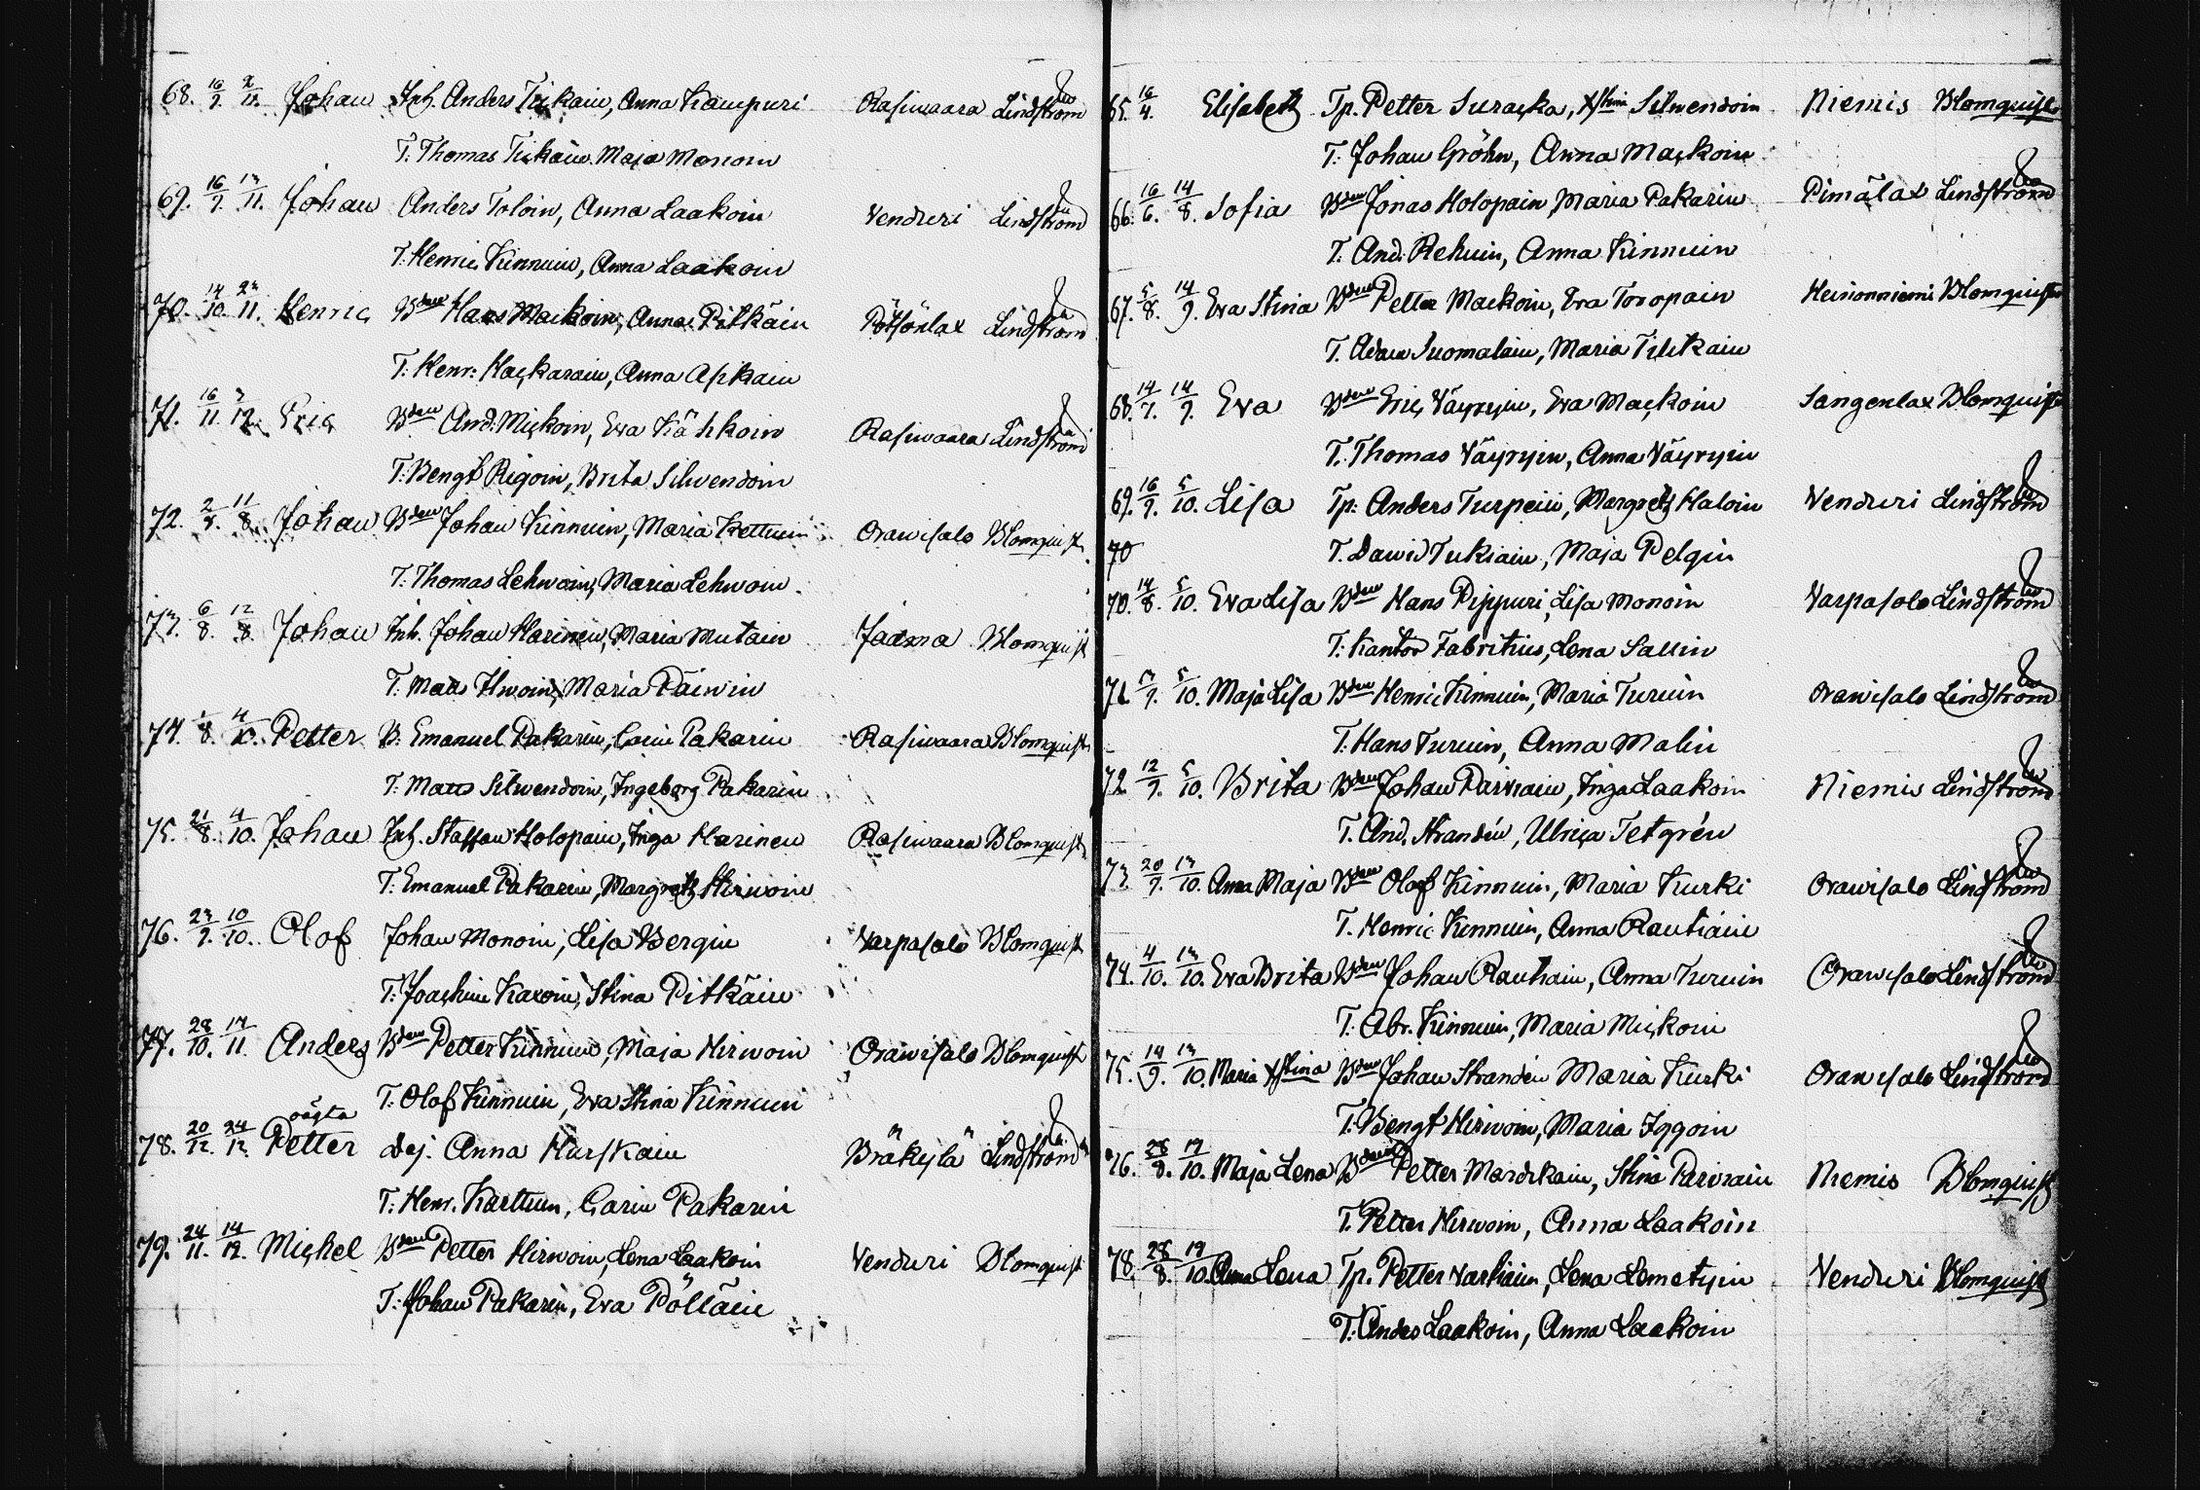 68. 16/9. 2/11. Johan Inh. Anders Tiskain, Anna Kaupuri Rasiwaara Lindström
T: Thomas Tiskain. Maja Monoin
69. 16/9. 13/11. Johan Anders Toloin, Anna Laakoin Venduri Lindström
T: Henric Kinnuin, Anna Laakoin
70. 14/10. 23/11. Henric Bden Hans Mackoin, Anna Pitkäin Lindström
T: Henr: Anna
71. 16/11. 3/12. Eric Bden And. Mickoin, Eva Kähkoin Rasiwaara Lindström
T: Bengt Rigoin, Brita Silwendoin
72. 11/8. Johan Bden Johan Kinnuin, Maria Kettuin Orawisalo Blomquist
T: Thomas Lehwoin, Maria Lehwoin.
73. 6/8. 12/8. Johan Inh. Johan Harinen, Maria Mutain Jaama Blomquist
T: Mats Hwoin, Maria Päiwin
74. 1/8. 4/10. Petter B: Emanuel Pakarin, Carin Pakarin Rasiwaara Blomquist
T: Matts Silwendoin, Ingeborg Pakarin
75. 21/8. 4/10. Johan Inh. Staffan Holopain, Inga Harinen Rasiwaara Blomquist
T: Emanuel Pakarin, Margreth Hirwoin
76. 23/9. 10/10. Olof Johan Monoin, Lisa Bergin Varpasalo Blomquist
T: Joachim Karoin, Stina Pitkäin
77. 28/10. 17/11. Anders Bden Petter Kinnuin, Maja Hirwoin Orawisalo Blomquist
T: Olof Kinnuin, Eva Stina Kinnuin
oägta
78. 20/12. 24/12. Petter Dej. Anna Hurskain Bräkylä Lindström
T: Henr. Karttuin, Carin Pakarin
79. 24/11. 14/12. Michel Bden Petter Hirwoin, Lena Laakoin Venduri Blomquist
T: Johan Pakarin, Eva Pölläin
65. 16/4. Elisabeth Tp. Petter Suracka, Xstina Silwendoin Niemis Blomquist
T: Johan Gröhn, Anna Mackoin
66. 16/6. 14/8. Sofia Bden Jonas Holopain, Maria Pakarin Pimälax Lindström
T. And. Rehuin, Anna Kinnuin
67. 5/8. 14/9. Eva Stina Bden Petter Mackoin, Eva Toropain Heinonniemi Blomquist
T. Adam Suomalain, Maria
68. 14/7. 14/9. Eva Bden Eric Väyryin, Eva Mackoin Sangenlax Blomquist
T. Thomas Väyryin, Anna Väyryin
69. 16/9. 5/10. Lisa Tp: Anders Turpein, Margreth Haloin Venduri Lindström
70 T. Dawid Tukiain, Maja Pelgin
70. 14/8. 5/10. Eva Lisa Bden Hans Pippuri, Lisa Monoin Varpasalo Lindström
T: Kantor Fabritius, Lena Sallin
71. 5/10. Maja Lisa Bden Henric Kinnuin, Maria Turuin Orawisalo Lindström
T: Hans Turuin, Anna Malin
72. 12/9. 5/10. Brita Bden Johan Parviain, Inga Laakoin Niemis Lindström
T. And. Strandén, Ulrica Tetgrén
73. 20/9. 13/10. Anna Maja Bden Olof Kinnuin, Maria Kurki Orawisalo Lindström
T. Henric Kinnuin, Anna Rautiain
74. 4/10. 13/10. Eva Brita Bden Johan Rautiain, Anna Turuin Orawisalo Lindström
T: Abr. Kinnuin, Maria Mickoin
75. 14/9. 13/10. Maria Xstina Bden Johan Strandén Maria Kurki Orawisalo Lindström
T. Bengt Hirwoin, Maria Iggoin
76. 28/8. 19/10. Maja Lena Bden Petter Mardikain, Stina Parviain Niemis Blomquist
T. Petter Hirwoin, Anna Laakoin
78. 28/8. 19/10. Anna Lena Tp. Petter Vartiain, Lena Lemetyin Venduri Blomquist
T. Anders Laakoin, Anna Laakoin